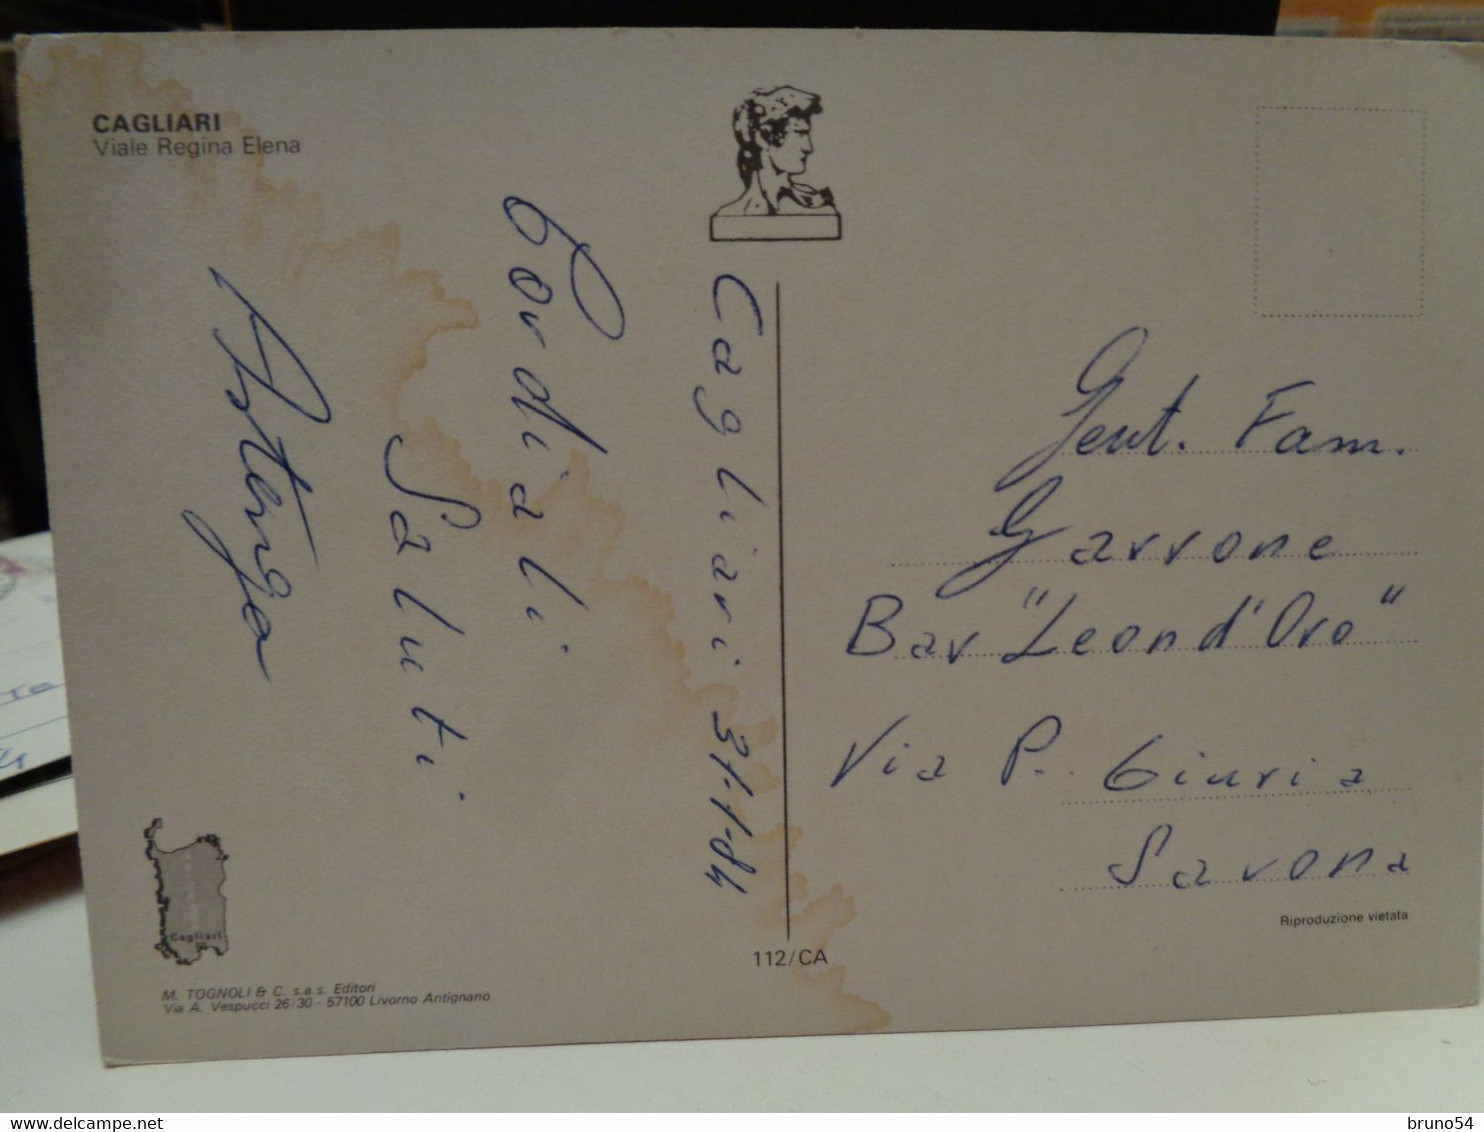 CAGLIARI
Viale Regina Elena
Cagliari 31-1-84
Cordiali
Saluti.
Astengo
Gent. Fam.
Garrone
Bar "Leon d'Oro"
Via P. Giuria
Savona
Riproduzione vietata
112/CA
Cagliari
M. TOGNOLI & C. s.a.s. Editori
Via A. Vespucci 26/30 - 57100 Livorno Antignano
bruno54